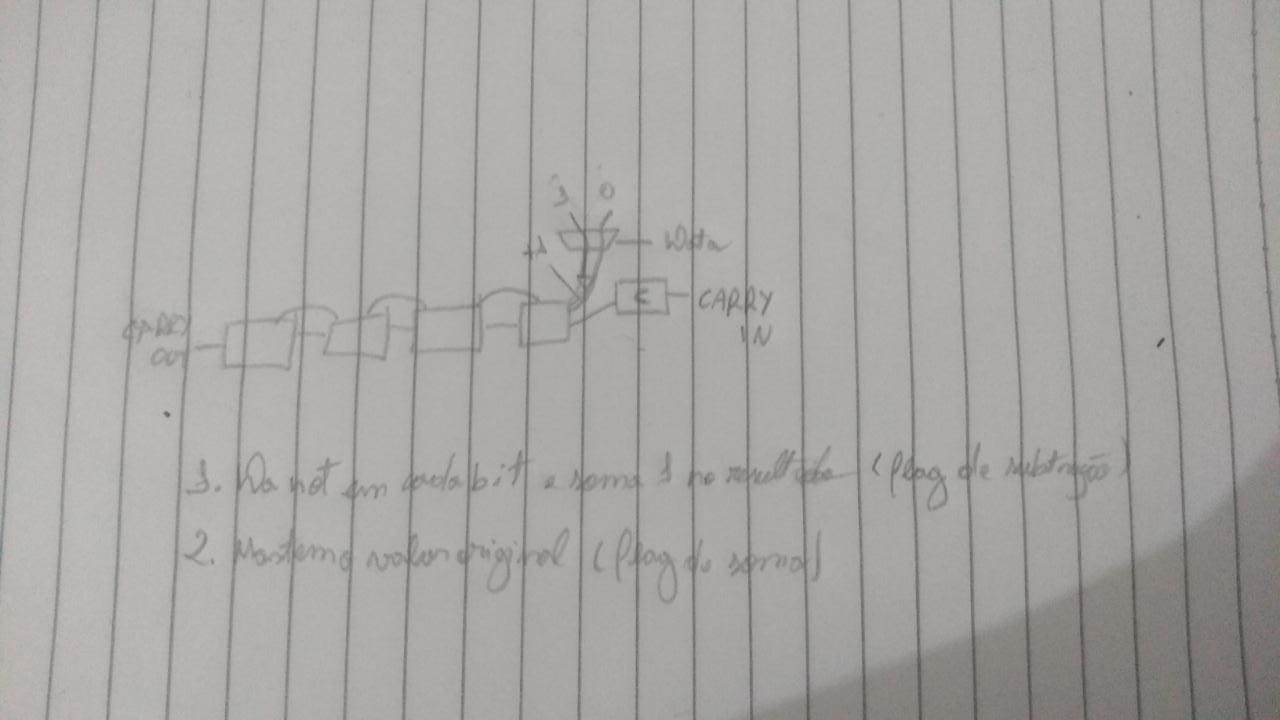 1 0
+1
Data
CARRY
IN
CARRY
OUT
C
1. Da not em cada bit e soma 1 no resultado (flag de subtração)
2. Mantemo valor original (flag de soma)